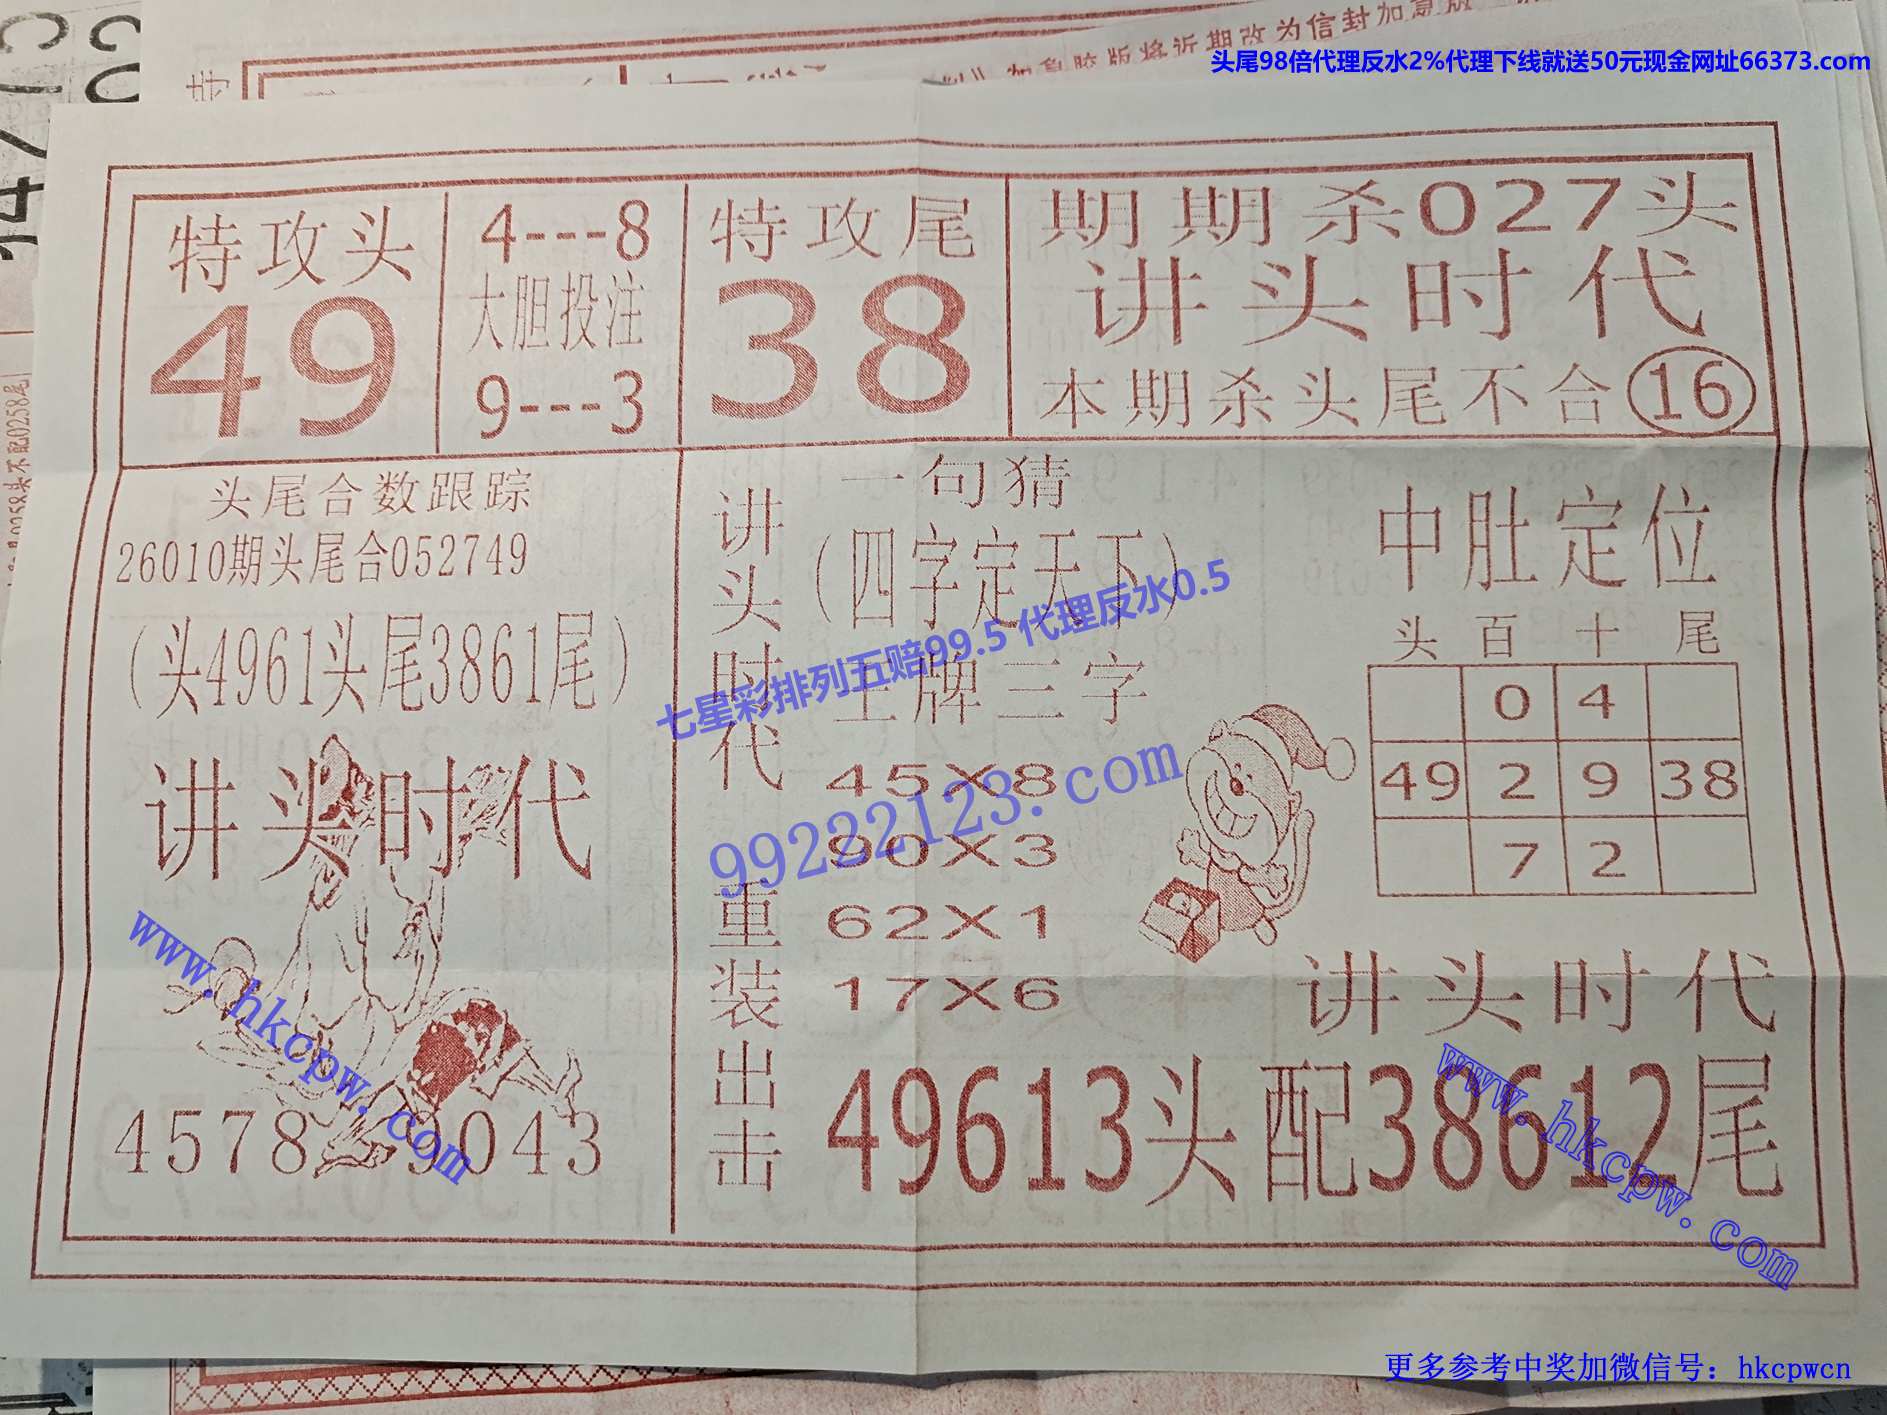 改为信封加急版
头尾98倍代理反水2%代理下线就送50元现金网址66373.com
特攻头
49
4---8
大胆投注
9---3
特攻尾
38
期期杀027头
讲头时代
本期杀头尾不合16
头尾合数跟踪
26010期头尾合052749
(头4961头尾3861尾)
讲头时代
4578 9043
讲头时代 重装出击
一句猜
(四字定天下)
王牌三字
45X8
90X3
62X1
17X6
中肚定位
头 百 十 尾
0 4
49 2 9 38
7 2
讲头时代
49613头配38612尾
七星彩排列五赔99.5 代理反水0.5
99222123.com
www.hkcpw.com
www.hkcpw.com
更多参考中奖加微信号：hkcpwcn